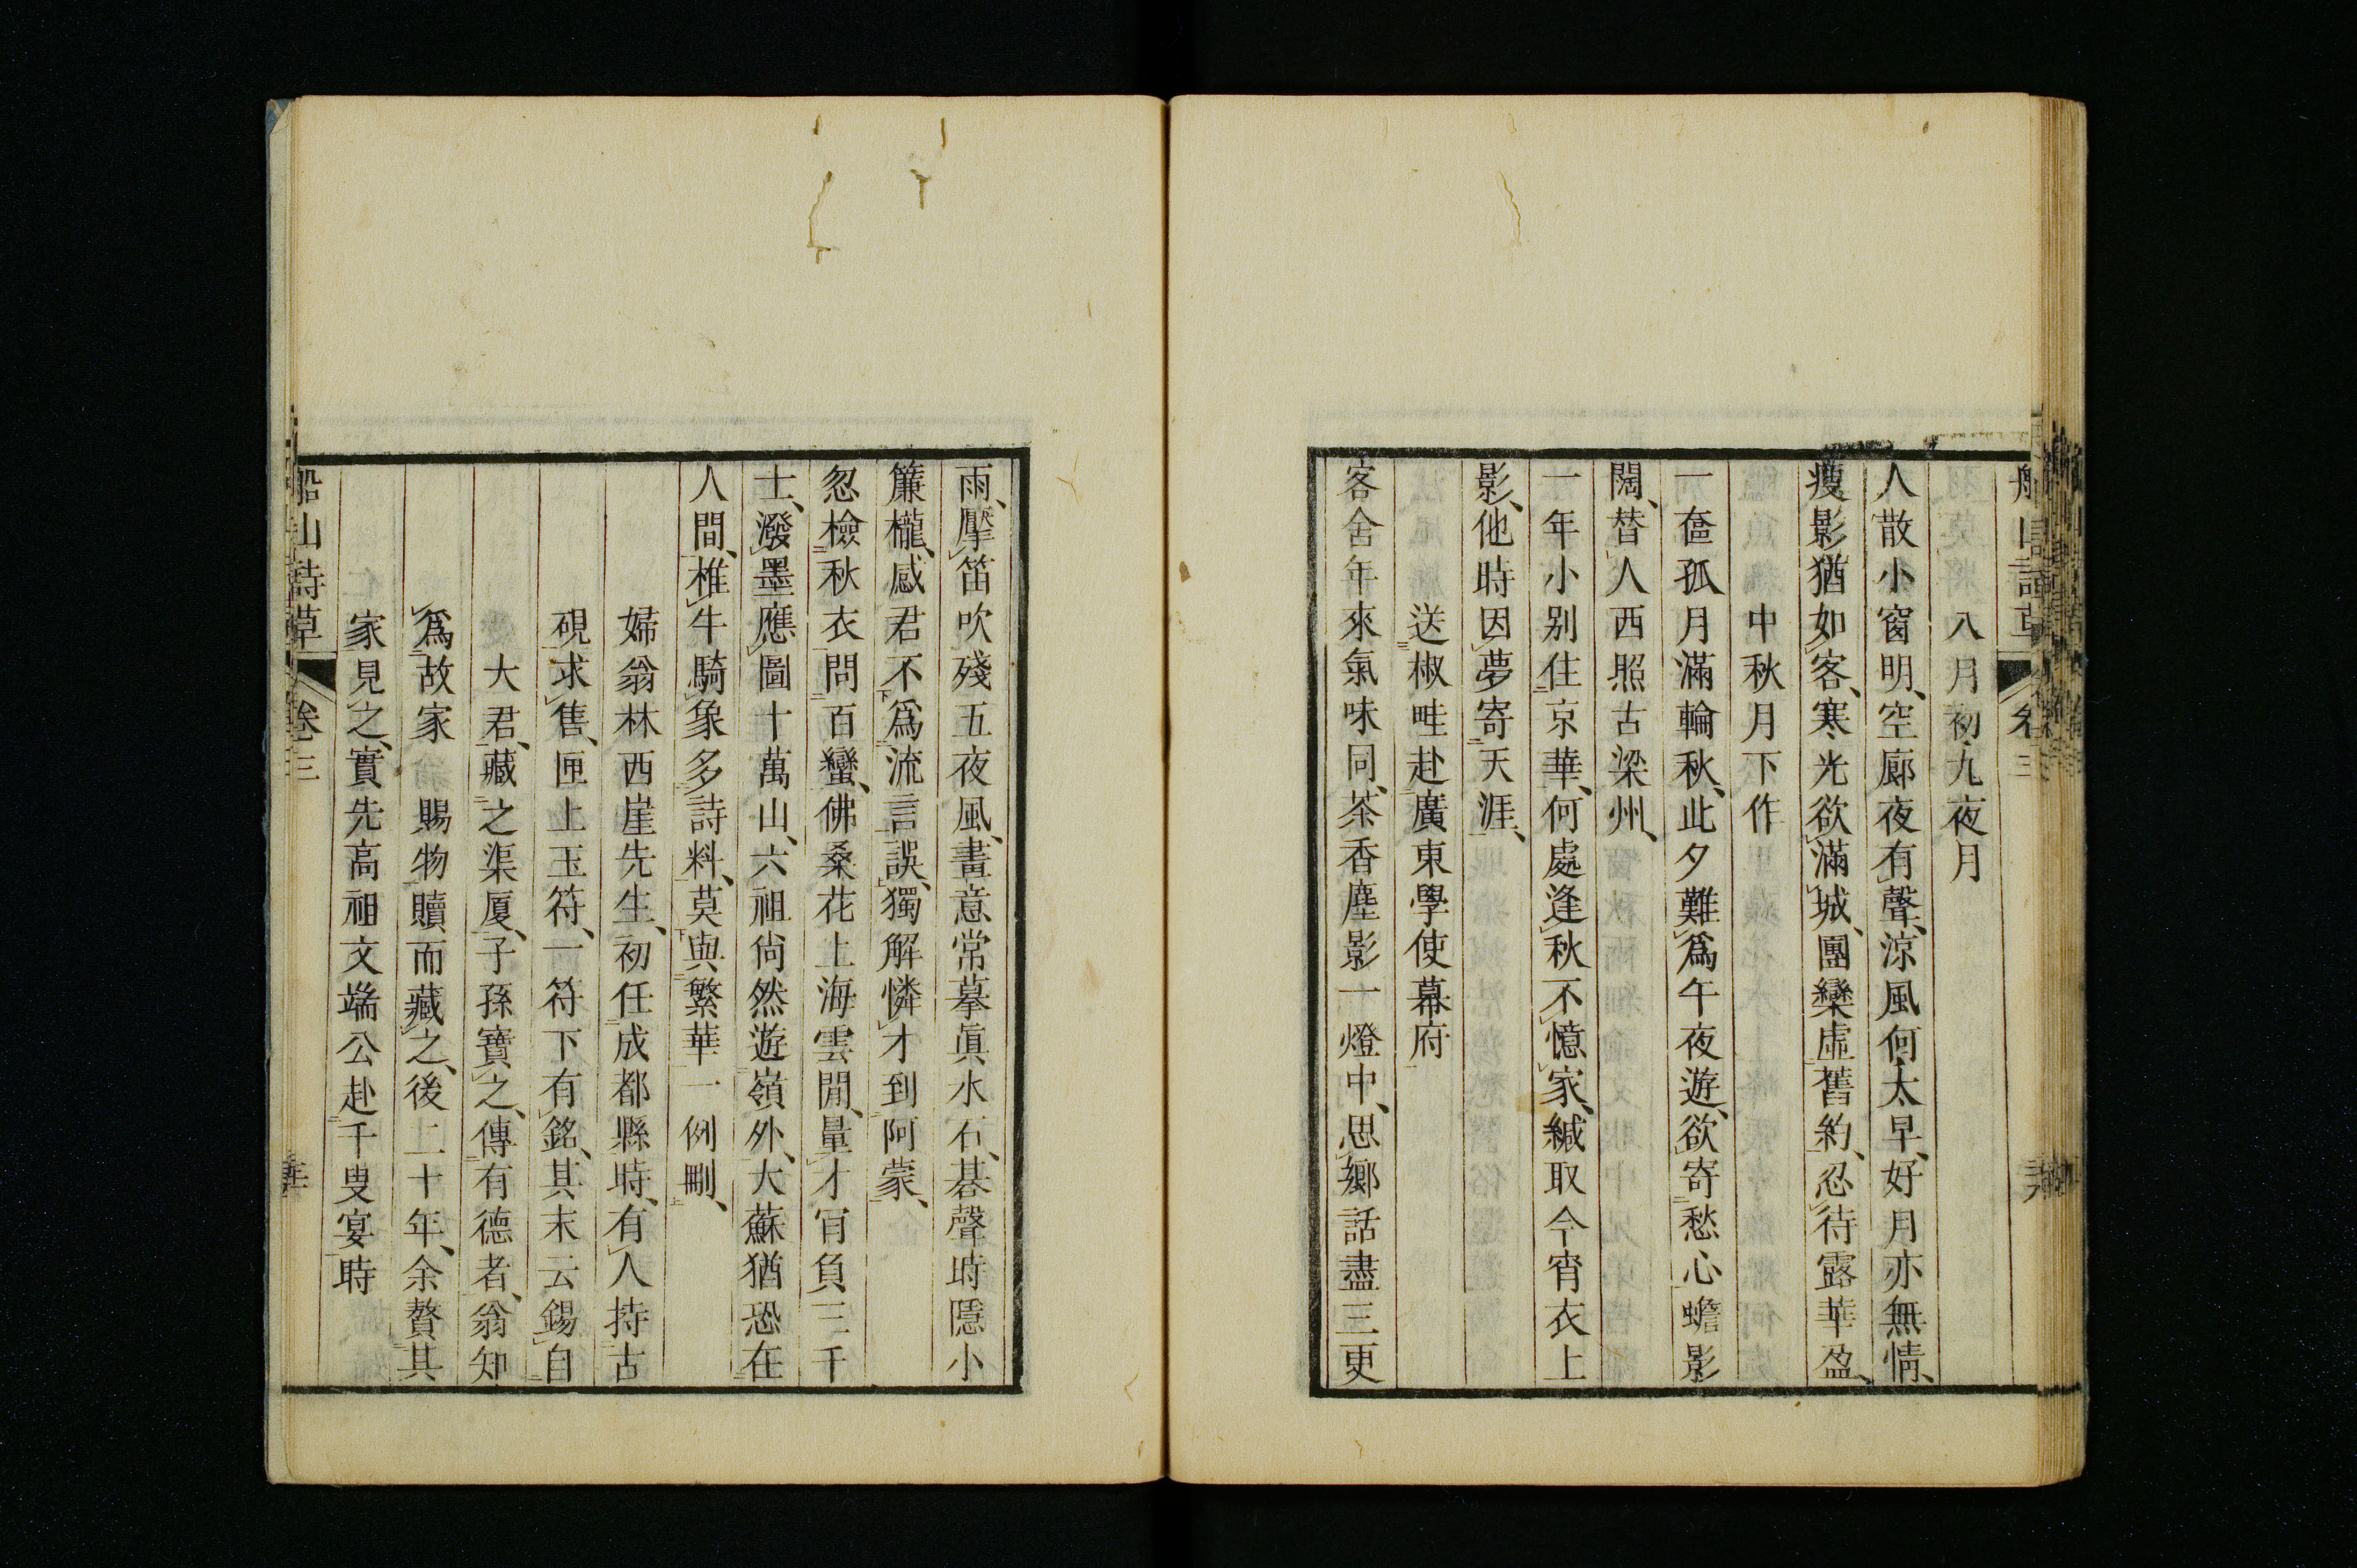 船山詩草 卷三
八月初九夜月
人散小窗明、空廊夜有聲、涼風何太早、好月亦無情、
瘦影猶如客、寒光欲滿城、團欒虛舊約、忍待露華盈、
中秋月下作
一奩孤月滿輪秋、此夕難爲午夜遊、欲寄愁心蟾影
闊、替人西照古梁州、
一年小別住京華、何處逢秋不憶家、緘取今宵衣上
影、他時因夢寄天涯、
送椒畦赴廣東學使幕府
客舍年來氣味同、茶香塵影一燈中、思鄉話盡三更
雨、擪笛吹殘五夜風、畫意常摹眞水石、碁聲時隱小
簾櫳、感君不爲流言誤、獨解憐才到阿蒙、
忽檢秋衣問百蠻、佛桑花上海雲閒、量才肯負三千
士、潑墨應圖十萬山、六祖尙然遊嶺外、大蘇猶恐在
人間、椎牛騎象多詩料、莫與繁華一例刪、
婦翁林西崖先生、初任成都縣時、有人持古
硯求售、匣上玉符、一符下有銘、其末云錫自
大君、藏之渠厦、子孫寶之、傳有德者、翁知
爲故家 賜物贖而藏之、後二十年、余贅其
家見之、實先高祖文端公赴千叟宴時
船山詩草 卷三